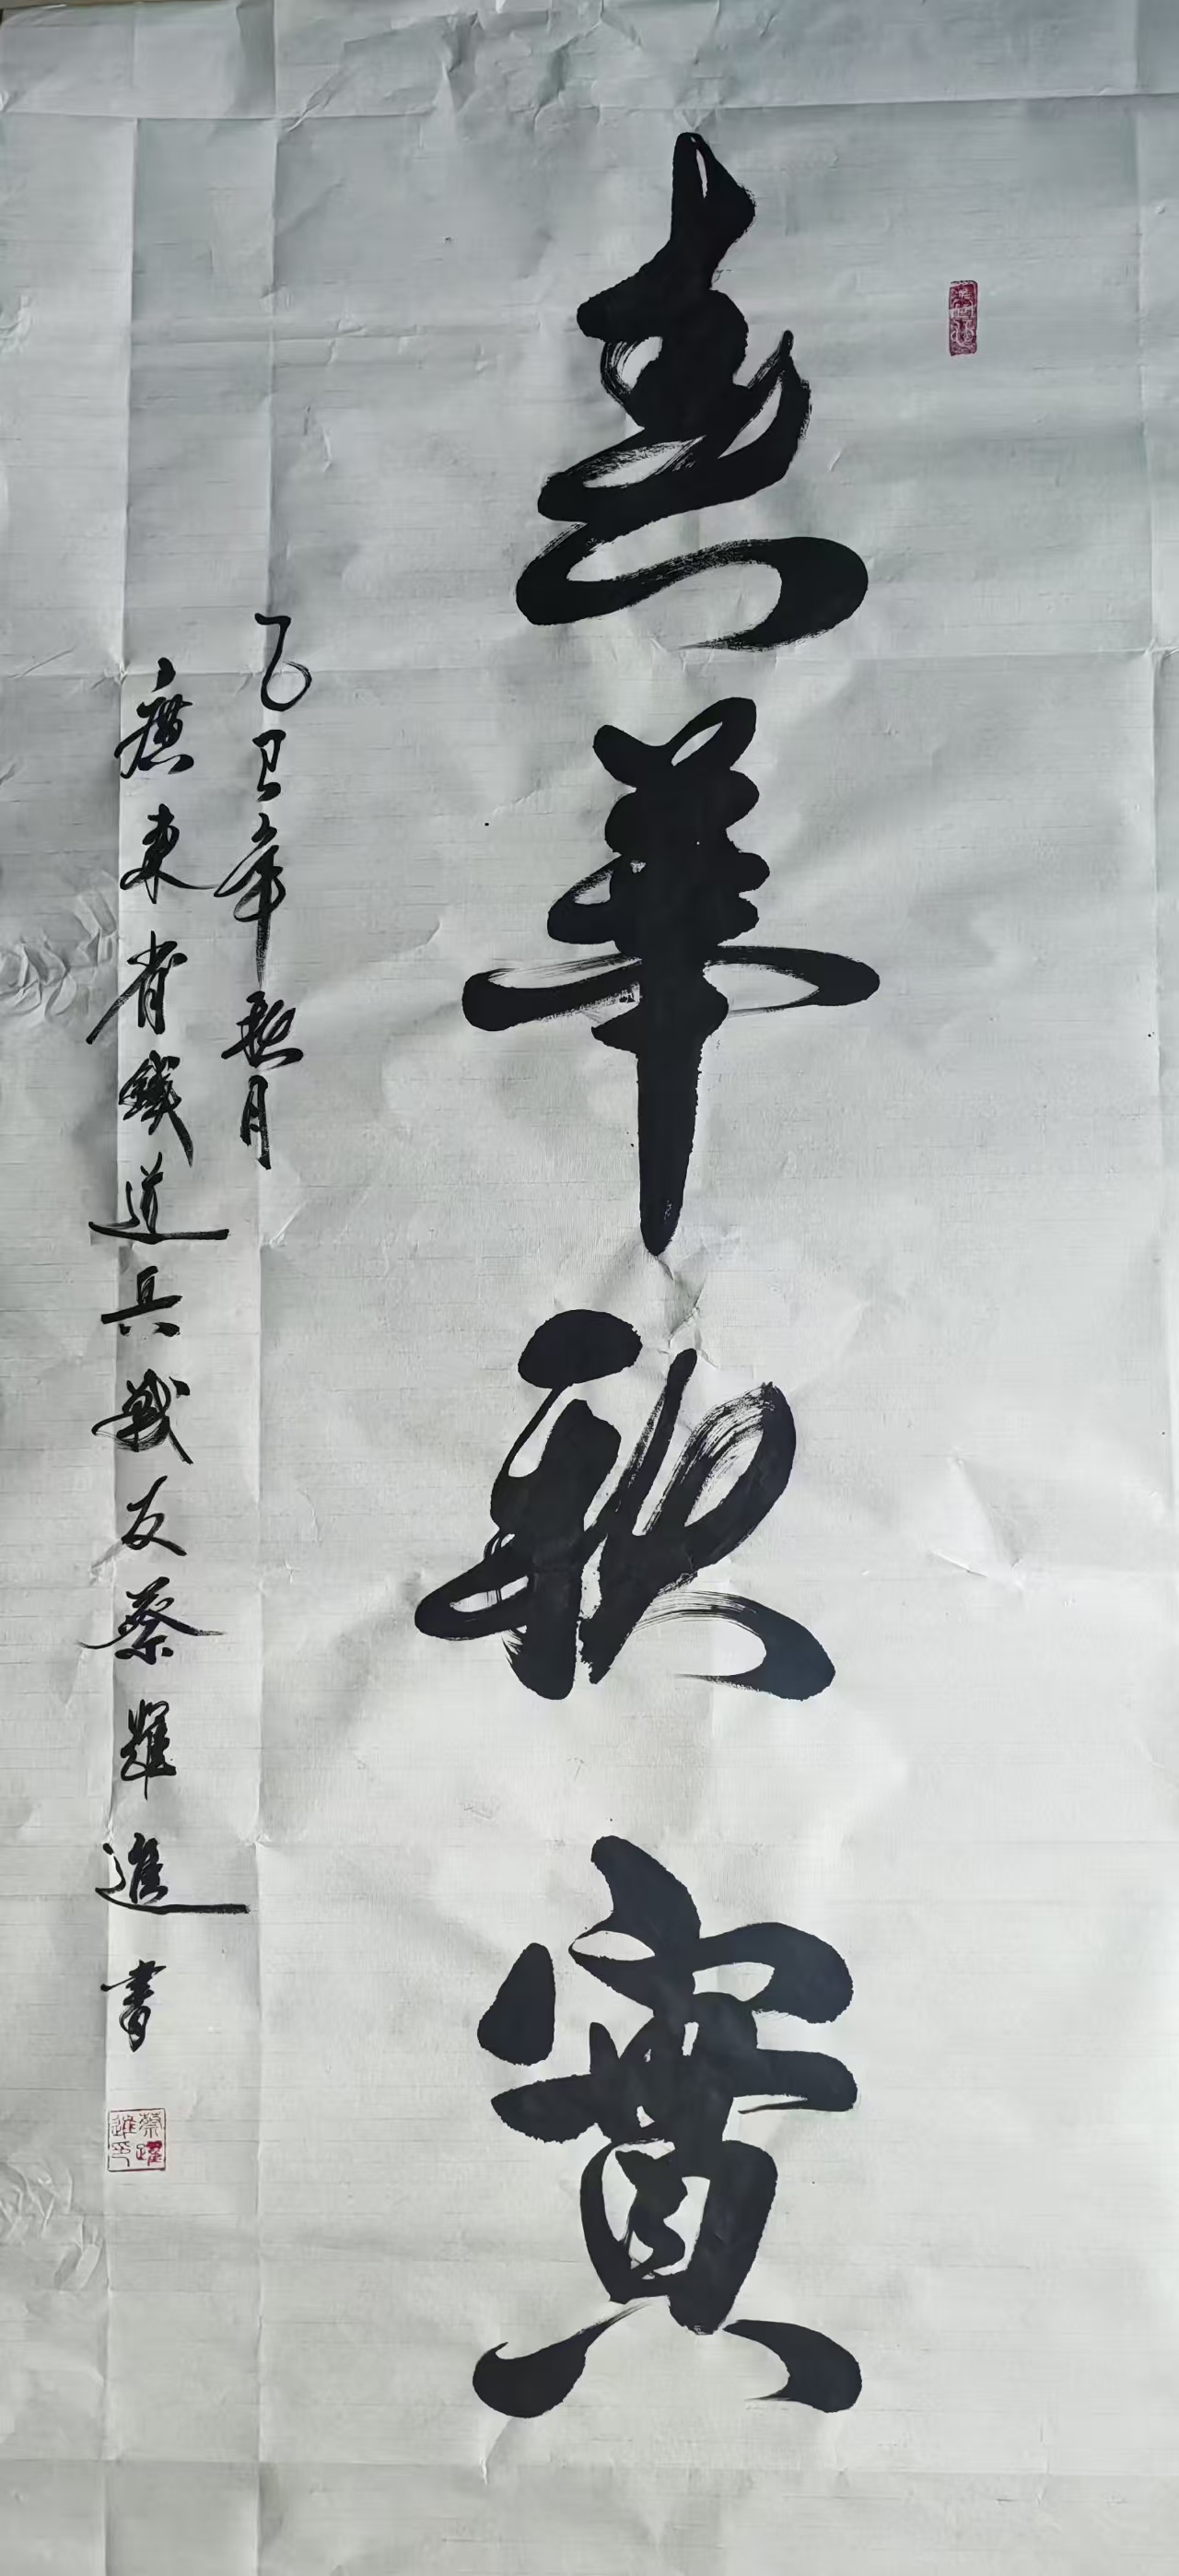 春華秋實
乙巳年秋月
廣東省鐵道兵戰友蔡躍進書
蔡躍進印